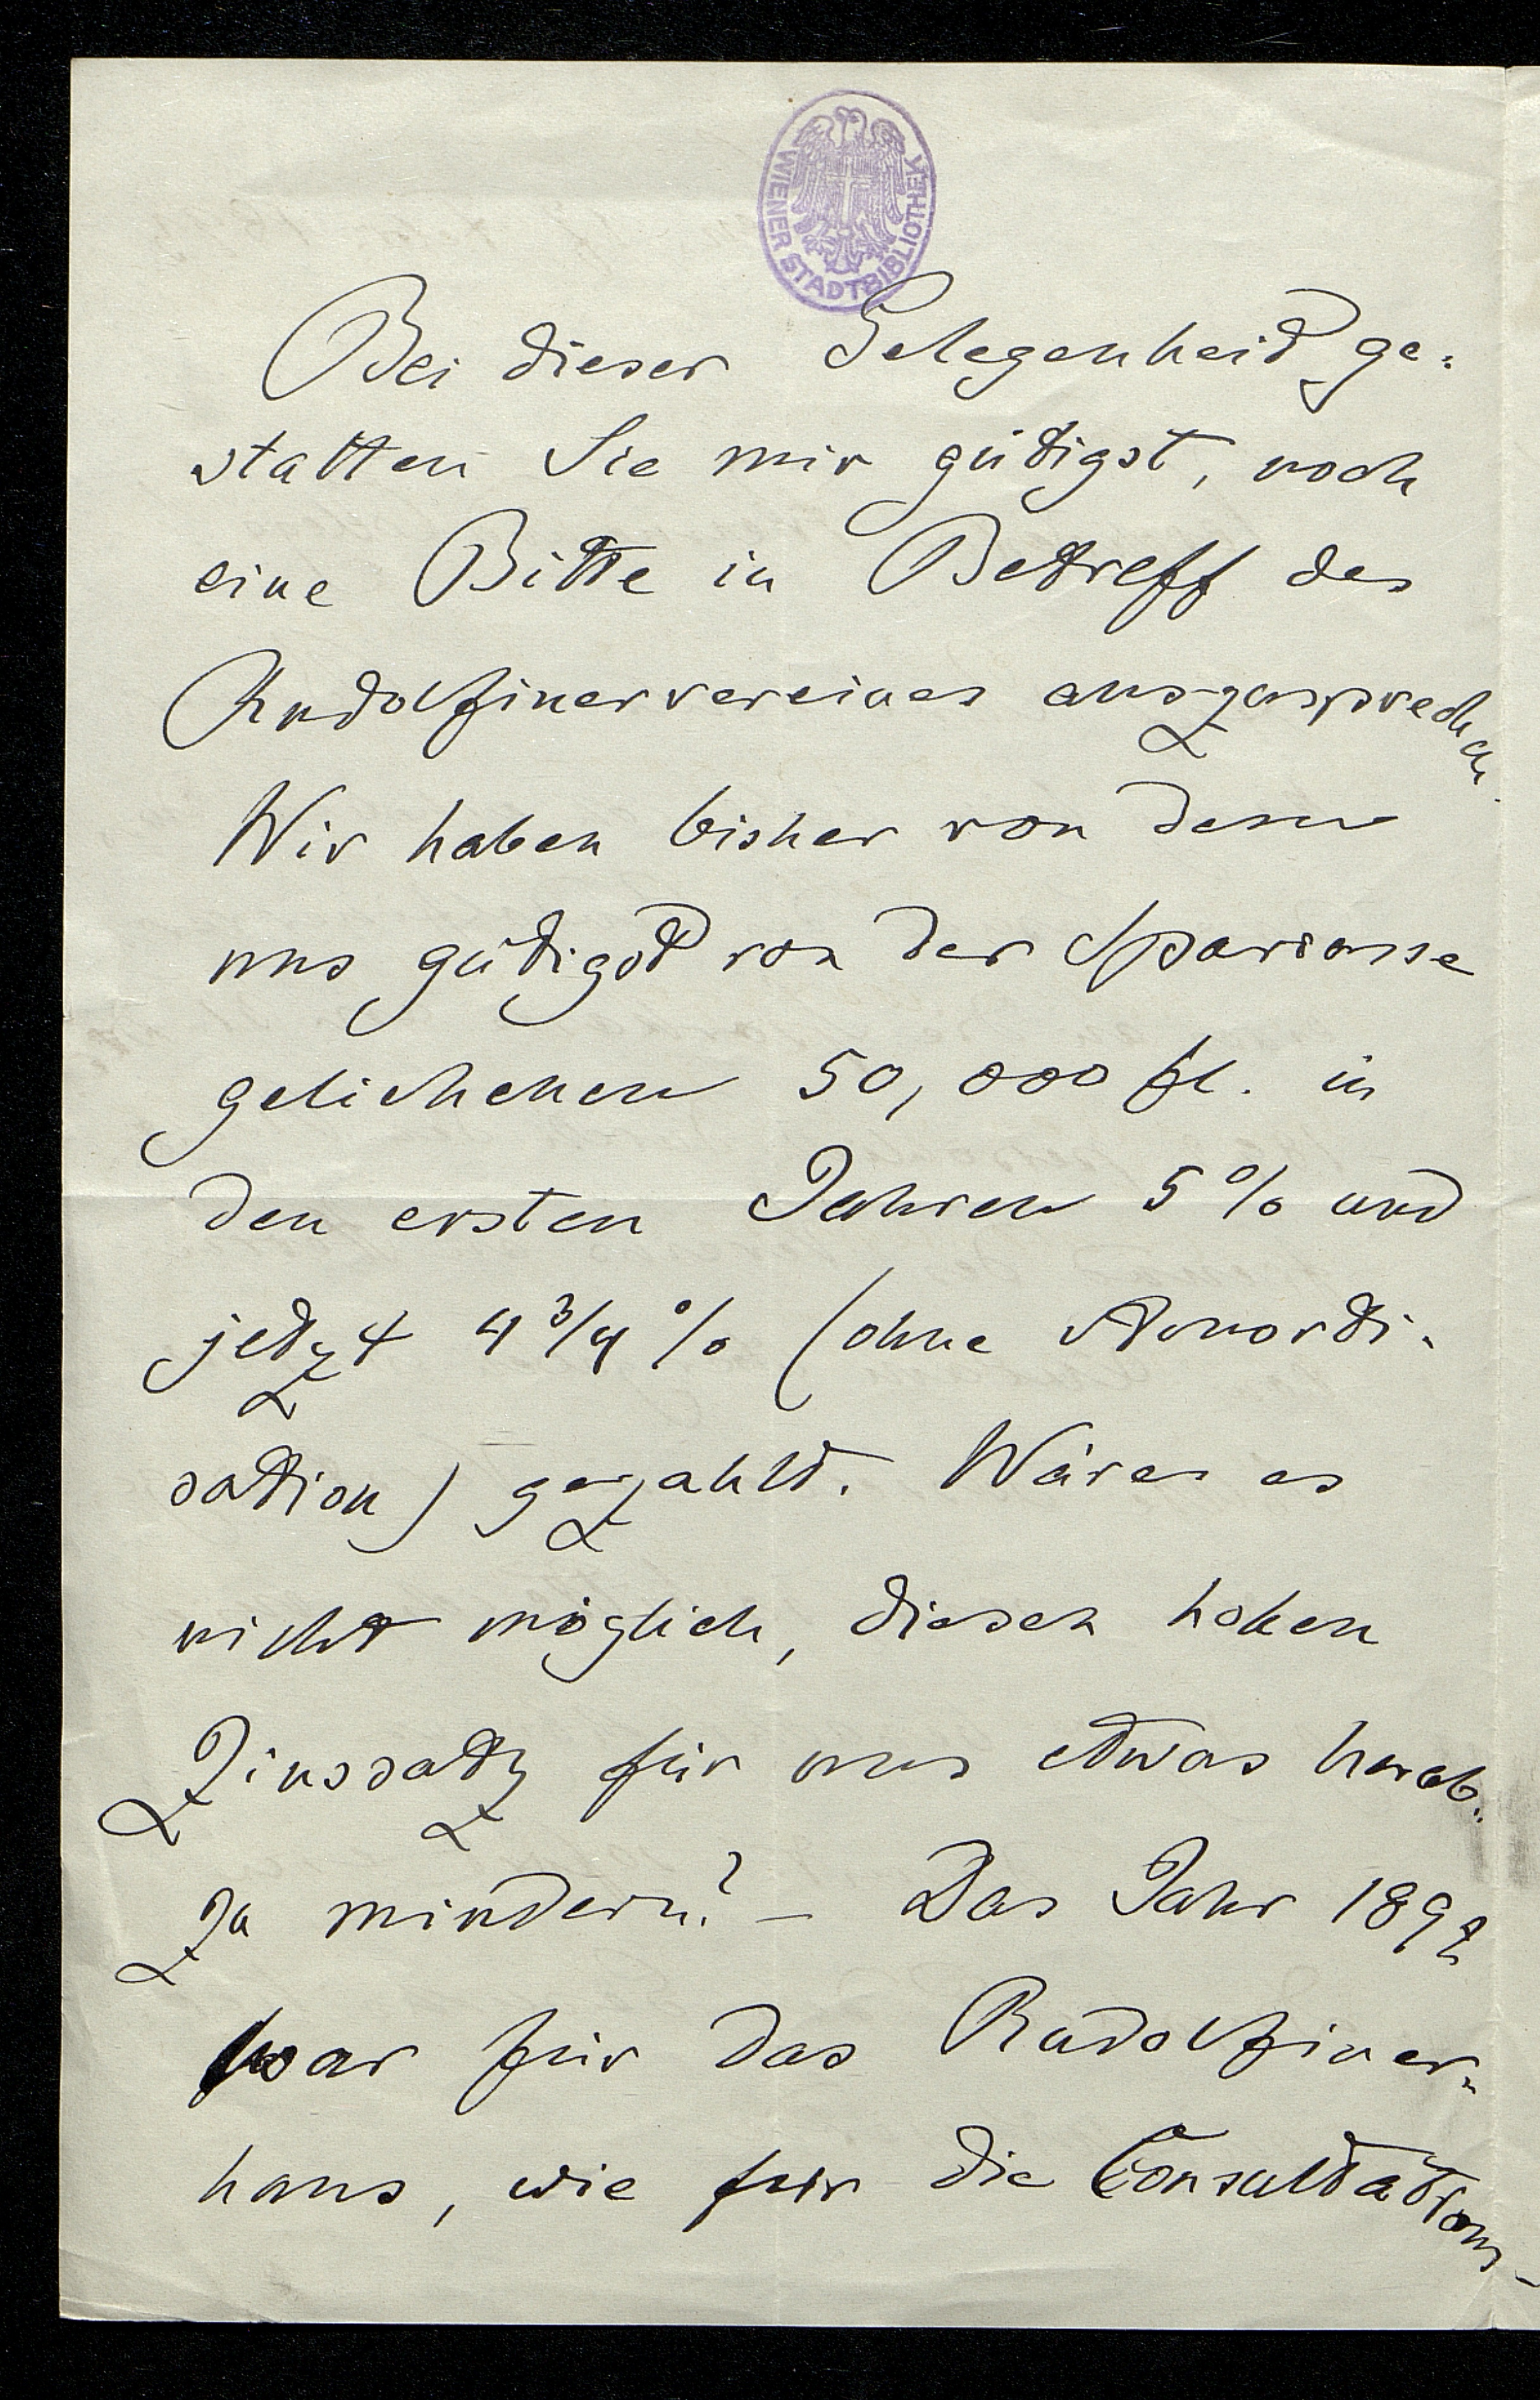 WIENER STADTBIBLIOTHEK
Bei dieser Gelegenheit ge-
statten Sie mir gütigst, noch
eine Bitte in Betreff des
Rudolfinervereines auszusprechen.
Wir haben bisher von denen
uns gütigst von der Sparcasse
geliehenen 50,000 fl. in
den ersten Jahren 5% und
jetzt 4 3/4 % (ohne Amorti-
sation) gezahlt. Wäre es
nicht möglich, diesen hohen
Zinssatz für uns etwas herab-
zu mindern? – Das Jahr 1892
war für das Rudolfiner-
haus, wie für die Consultations-